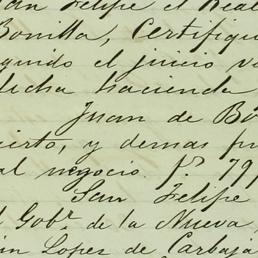 an Felipe el Real
Bonilla, Certifiqu
guido el juicio v
dicha hacienda
Juan de Bo
ierto, y demas pa
al negocio. f.s 79
San Felipe
l Gob.r de la Nueva
in Lopes de Carbaja